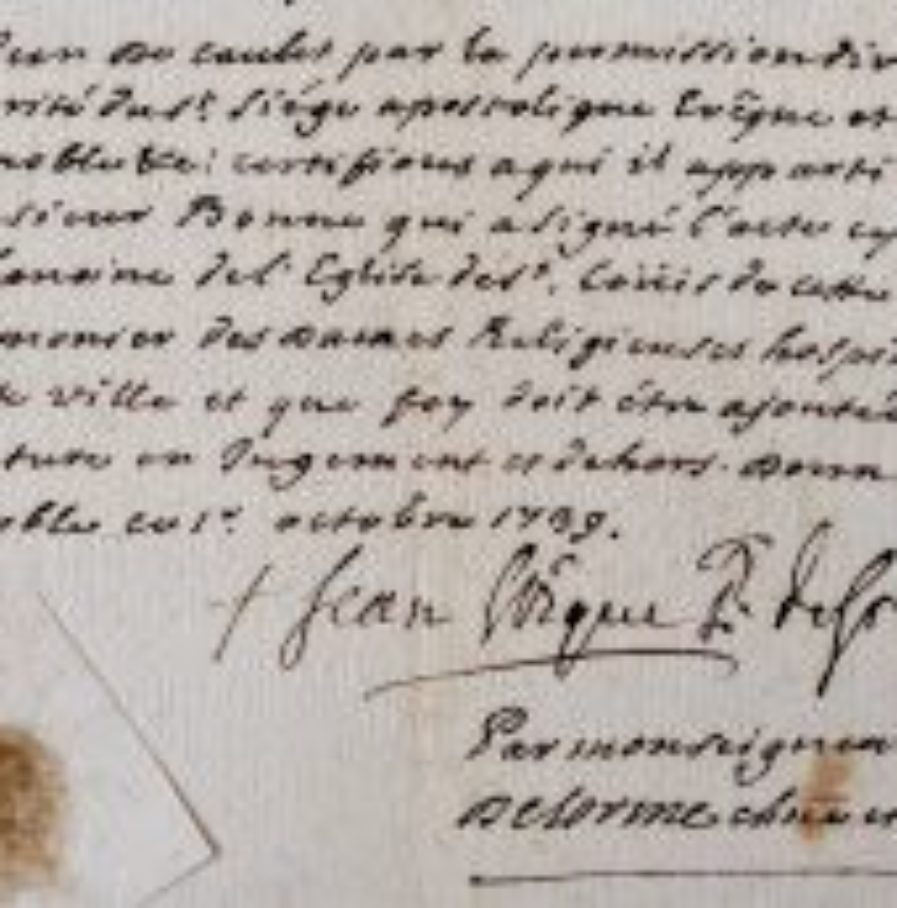 Jean de caulet par la permission div
rité du st. siége apostolique Evêque et
noble &c: certifions a qui il apparti
sieur Bonne qui a signé l'acte cy
hanoine de l'Eglise de st. Loüis de cette
monier des dames Religieuses hospit
te ville et que foy doit étre ajoutée
ture en Jugement et dehors. donn
oble ce 1er. octobre 1739.
+ Jean Evêque Pr. de Gr
Par monseigneu
Delorme chne et